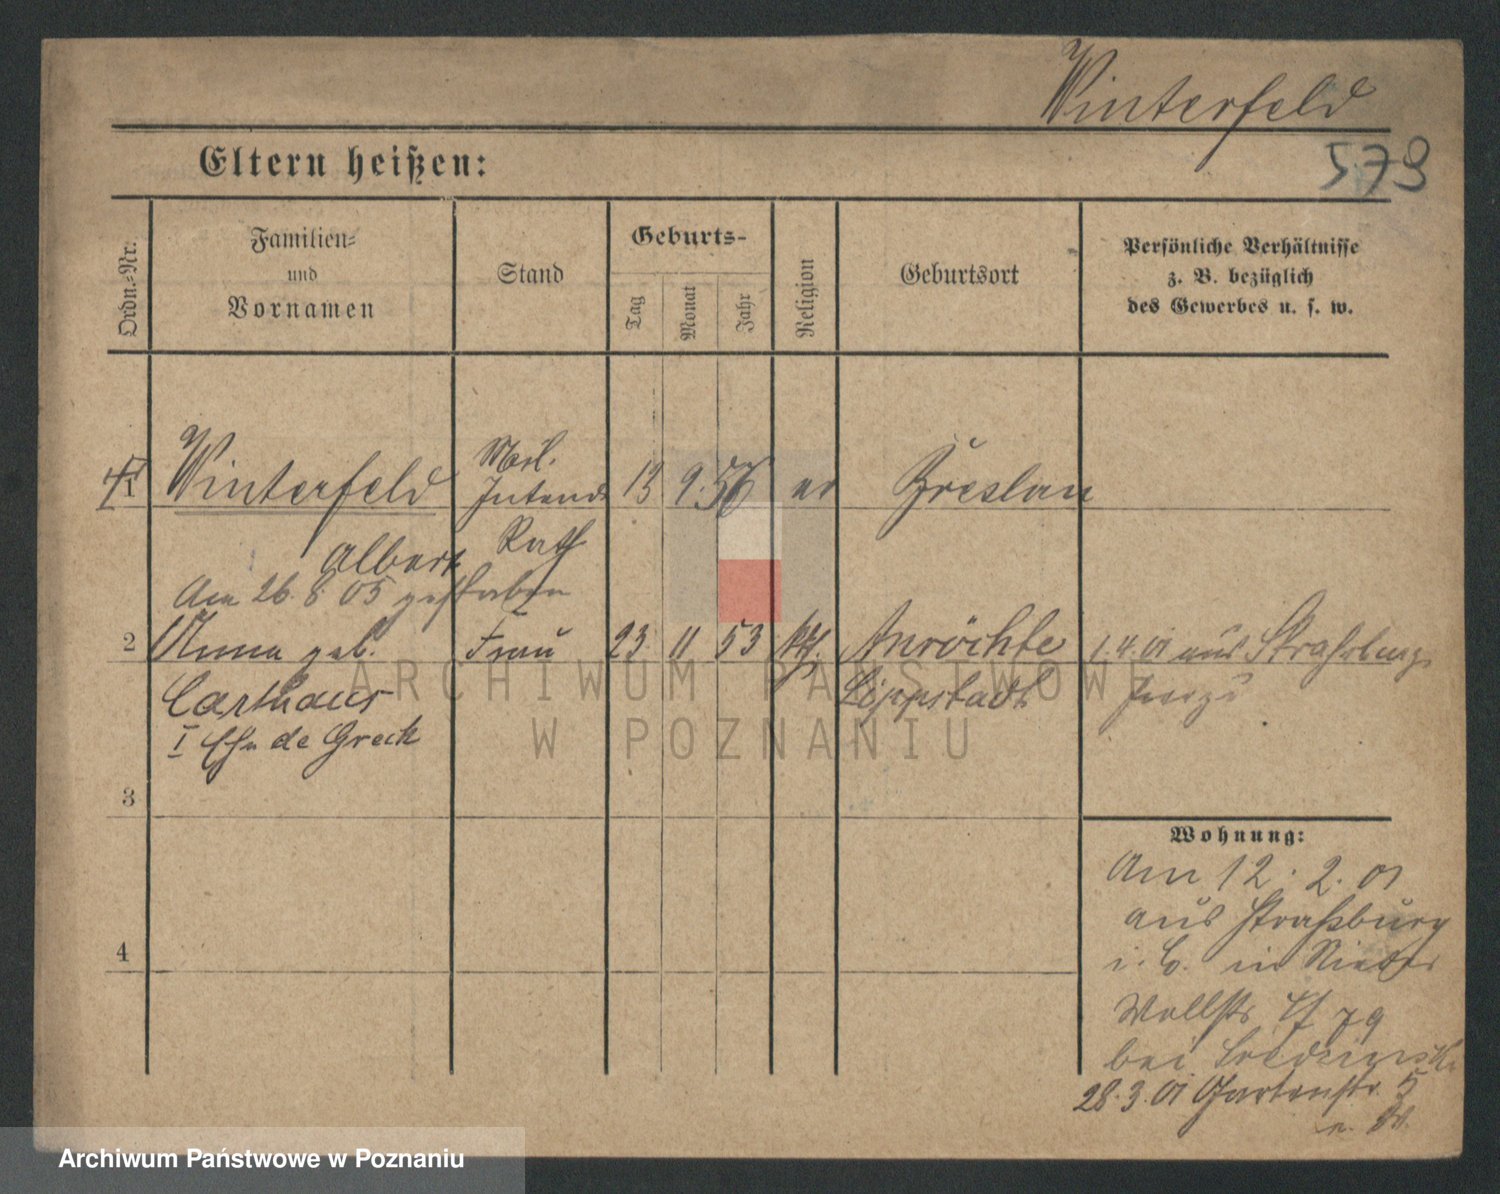 Winterfeld
579
Eltern heißen:
Ordn.-Nr.
Familien-
und
Vornamen
Stand
Geburts-
Tag
Monat
Jahr
Religion
Geburtsort
Persönliche Verhältnisse
z. B. bezüglich
des Gewerbes u. s. w.
1
Winterfeld
Albert
Mil.
Intend.
Rath
13 9. 56 ev Breslau
Am 26. 8. 05 gestorben
2
Anna geb.
Carthaus
I Ehe de Greck
Frau
23 11 53 kth.
Anröchte
Lippstadt
1.4.01 aus Straßburg
3
4
Wohnung:
Am 12. 2. 01
aus Straßburg
i. E. in Nieder
Wallstr.
bei
28.3.01 Gartenstr. 5
ARCHIWUM PAŃSTWOWE
W POZNANIU
Archiwum Państwowe w Poznaniu